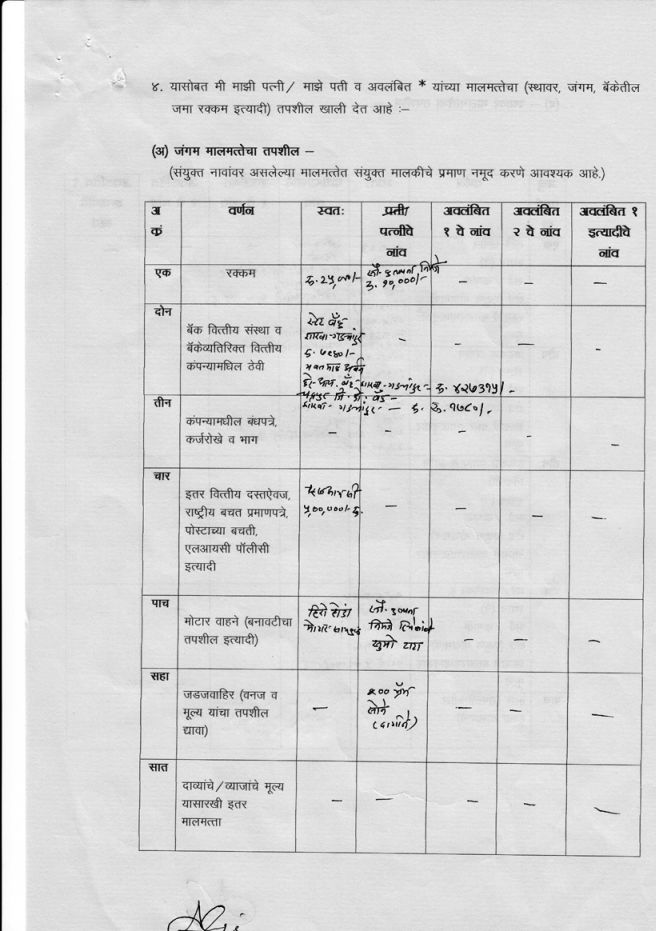 ४. यासोबत मी माझी पत्नी / माझे पती व अवलंबित * यांच्या मालमत्तेचा (स्थावर, जंगम, बॅकेतील
जमा रक्कम इत्यादी) तपशील खाली देत आहे :–
(अ) जंगम मालमत्तेचा तपशील –
(संयुक्त नावांवर असलेल्या मालमत्तेत संयुक्त मालकीचे प्रमाण नमूद करणे आवश्यक आहे.)
अ वर्णन स्वतः पती/ अवलंबित अवलंबित अवलंबित १
क्रं पत्नीचे १ चे नांव २ चे नांव इत्यादीचे
नांव नांव
एक रक्कम रु. २५,०००/- रु. १०,०००/- – – –
दोन
बॅक वित्तीय संस्था व
बॅकेव्यतिरिक्त वित्तीय
कंपन्यामधिल ठेवी
स्टेट बँक
शाखा
रु. ४२७३१५/-
तीन
रु. १७८०/-
कंपन्यामधील बंधपत्रे,
कर्जरोखे व भाग
चार
इतर वित्तीय दस्तऐवज,
राष्ट्रीय बचत प्रमाणपत्रे,
पोस्टाच्या बचती,
एलआयसी पॉलीसी
इत्यादी
एलआयसी
५,००,०००/- रु.
पाच
मोटार वाहने (बनावटीचा
तपशील इत्यादी)
हिरो होंडा
सहा
जडजवाहिर (वनज व
मूल्य यांचा तपशील
द्यावा)
ग्रॅम
सोने
(दागिने)
सात
दाव्यांचे / व्याजांचे मूल्य
यासारखी इतर
मालमत्ता